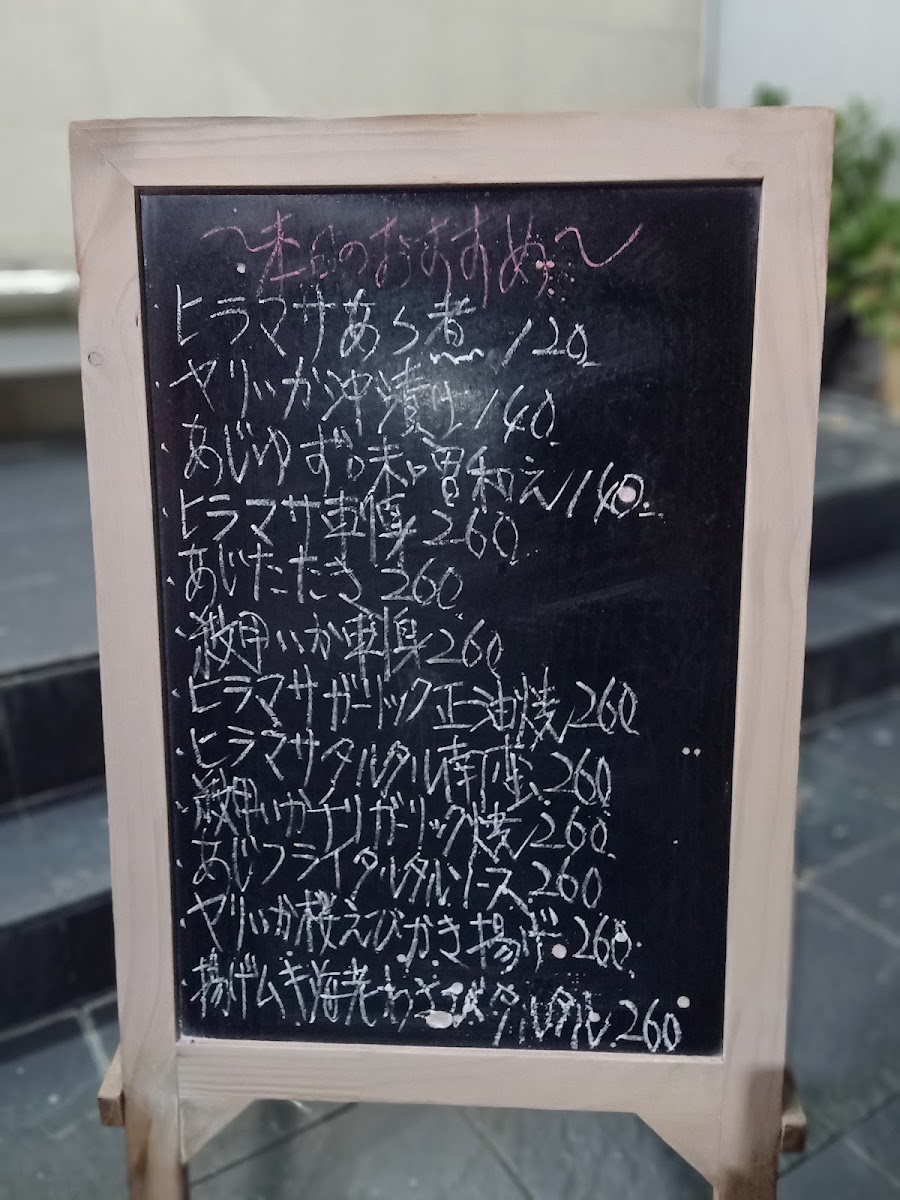 ～本日のおすすめ～
ヒラマサあら煮 120
・ヤリいか沖漬け 140
・あじゆず味噌和え 140
・ヒラマサ刺身 260
・あじたたき 260
・紋甲いか刺身 260
・ヒラマサガーリック正油焼 260
・ヒラマサタルタル南ばん 260
・紋甲いかナリガーリック焼 260
・あじフライタルタルソース 260
・ヤリいか桜えびかき揚げ 260
・揚げムキ海老わさびタルタル 260